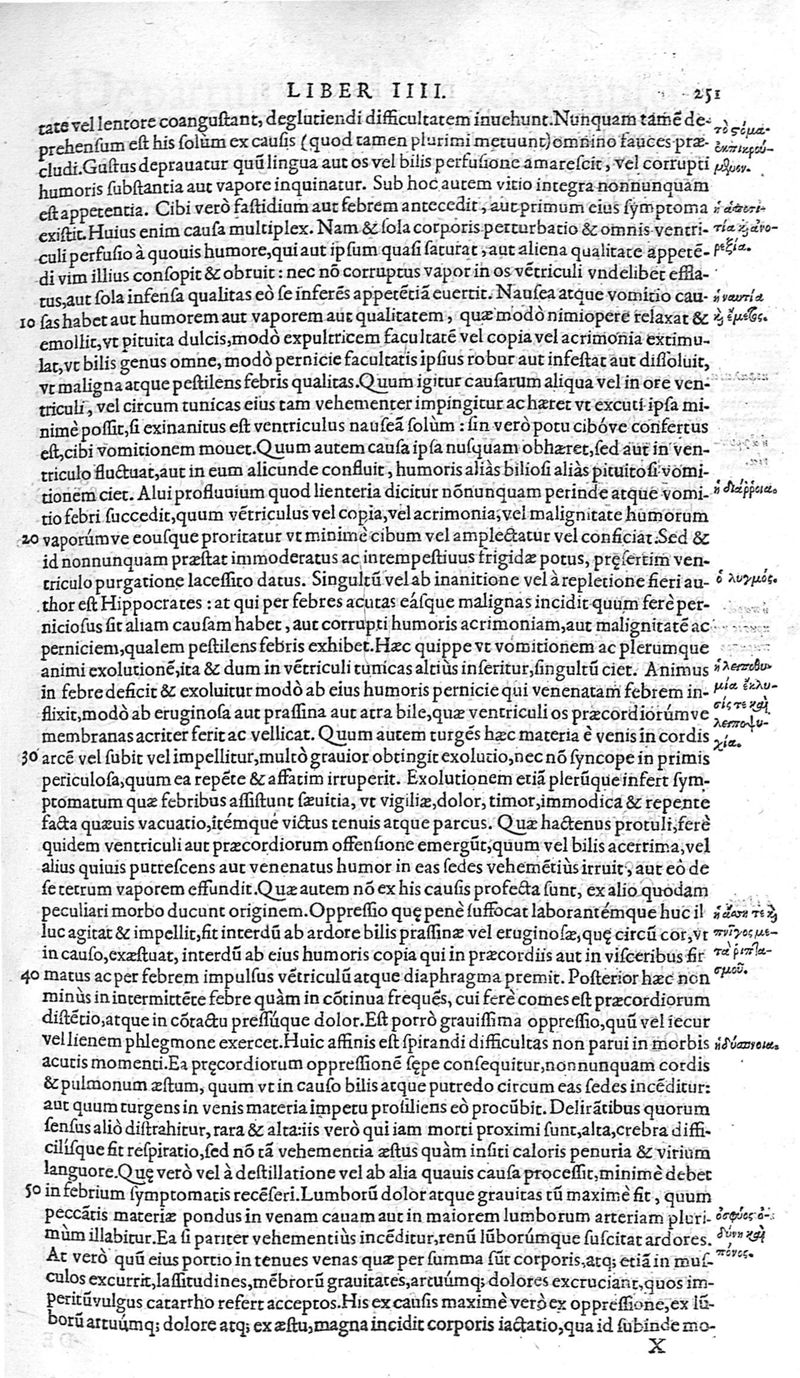 LIBER IIII. 251
tate vel lentore coangustant, deglutiendi difficultatem inuehunt. Nunquam tamẽ de-
prehensum est his solùm ex causis (quod tamen plurimi metuunt) omnino fauces præ-
cludi. Gustus deprauatur quũ lingua aut os vel bilis perfusione amarescit, vel corrupti
humoris substantia aut vapore inquinatur. Sub hoc autem vitio integra nonnunquam
est appetentia. Cibi verò fastidium aut febrem antecedit, aut primum eius symptoma
existit. Huius enim causa multiplex. Nam & sola corporis perturbatio & omnis ventri-
culi perfusio à quouis humore, qui aut ipsum quasi saturat, aut aliena qualitate appetẽ-
di vim illius consopit & obruit: nec nõ corruptus vapor in os vẽtriculi vndelibet effla-
tus, aut sola infensa qualitas eò se inferẽs appetẽtiã euertit. Nausea atque vomitio cau-
10 sas habet aut humorem aut vaporem aut qualitatem, quæ modò nimiopere relaxat &
emollit, vt pituita dulcis, modò expultricem facultatẽ vel copia vel acrimonia extimu-
lat, vt bilis genus omne, modò pernicie facultatis ipsius robur aut infestat aut dissoluit,
vt maligna atque pestilens febris qualitas. Quum igitur causarum aliqua vel in ore ven-
triculi, vel circum tunicas eius tam vehementer impingitur ac hæret vt excuti ipsa mi-
nimè possit, si exinanitus est ventriculus nauseã solùm: sin verò potu cibóve confertus
est, cibi vomitionem mouet. Quum autem causa ipsa nusquam obhæret, sed aut in ven-
triculo fluctuat, aut in eum alicunde confluit, humoris aliàs biliosi aliàs pituitosi vomi-
tionem ciet. Alui profluuium quod lienteria dicitur nõnunquam perinde atque vomi-
tio febri succedit, quum vẽtriculus vel copia, vel acrimonia, vel malignitate humorum
20 vaporúmve eousque proritatur vt minimè cibum vel amplectatur vel conficiat. Sed &
id nonnunquam præstat immoderatus ac intempestiuus frigidæ potus, pręsertim ven-
triculo purgatione lacessito datus. Singultũ vel ab inanitione vel à repletione fieri au-
thor est Hippocrates: at qui per febres acutas eásque malignas incidit quum ferè per-
niciosus sit aliam causam habet, aut corrupti humoris acrimoniam, aut malignitatẽ ac
perniciem, qualem pestilens febris exhibet. Hæc quippe vt vomitionem ac plerumque
animi exolutionẽ, ita & dum in vẽtriculi tunicas altiùs inseritur, singultũ ciet. Animus
in febre deficit & exoluitur modò ab eius humoris pernicie qui venenatam febrem in-
flixit, modò ab eruginosa aut prassina aut atra bile, quæ ventriculi os præcordiorúmve
membranas acriter ferit ac vellicat. Quum autem turgẽs hæc materia è venis in cordis
30 arcẽ vel subit vel impellitur, multò grauior obtingit exolutio, nec nõ syncope in primis
periculosa, quum ea repẽte & affatim irruperit. Exolutionem etiã plerũque infert sym-
ptomatum quæ febribus assistunt sæuitia, vt vigiliæ, dolor, timor, immodica & repente
facta quæuis vacuatio, itẽmque victus tenuis atque parcus. Quæ hactenus protuli, ferè
quidem ventriculi aut præcordiorum offensione emergũt, quum vel bilis acerrima, vel
alius quiuis putrescens aut venenatus humor in eas sedes vehemẽtiùs irruit, aut eò de
se tetrum vaporem effundit. Quæ autem nõ ex his causis profecta sunt, ex alio quodam
peculiari morbo ducunt originem. Oppressio quę penè suffocat laborantémque huc il
luc agitat & impellit, fit interdũ ab ardore bilis prassinæ vel eruginosæ, quę circũ cor, vt
in causo, exæstuat, interdũ ab eius humoris copia qui in præcordiis aut in visceribus fir
40 matus ac per febrem impulsus vẽtriculũ atque diaphragma premit. Posterior hæc non
minùs in intermittẽte febre quàm in cõtinua frequẽs, cui ferè comes est præcordiorum
distẽtio, atque in cõtactu pressúque dolor. Est porrò grauissima oppressio, quũ vel iecur
vel lienem phlegmone exercet. Huic affinis est spirandi difficultas non parui in morbis
acutis momenti. Ea pręcordiorum oppressionẽ sępe consequitur, nonnunquam cordis
& pulmonum æstum, quum vt in causo bilis atque putredo circum eas sedes incẽditur:
aut quum turgens in venis materia impetu prosiliens eò procũbit. Delirãtibus quorum
sensus aliò distrahitur, rara & alta: iis verò qui iam morti proximi sunt, alta, crebra diffi-
cilísque fit respiratio, sed nõ tã vehementia æstus quàm insiti caloris penuria & virium
languore. Quę verò vel à destillatione vel ab alia quauis causa processit, minimè debet
50 in febrium symptomatis recẽseri. Lumborũ dolor atque grauitas tũ maximè fit, quum
peccãtis materiæ pondus in venam cauam aut in maiorem lumborum arteriam pluri-
mùm illabitur. Ea si pariter vehementiùs incẽditur, renũ lũborúmque suscitat ardores.
At verò quũ eius portio in tenues venas quæ per summa sũt corporis, atq; etiã in mus-
culos excurrit, lassitudines, mẽbrorũ grauitates, artuúmq; dolores excruciant, quos im-
peritũ vulgus catarrho refert acceptos. His ex causis maximè verò ex oppressione, ex lũ-
borũ artuúmq; dolore atq; ex æstu, magna incidit corporis iactatio, qua id subinde mo-
X
τὸ στόμα-
ἐκπικρού-
μενον.
ἡ ἀσιτία καὶ ἀνο-
ρεξία.
ἡ ναυτία
καὶ ἔμετος.
ἡ διάῤῥοια.
ὁ λυγμός.
ἡ λειποθυ-
μία ἔκλυ-
σίς τε καὶ
λειποψυ-
χία.
ἡ ἄση τε καὶ
πνῖγος με-
τὰ ῥιπτα-
σμοῦ.
ἡ δύσπνοια.
ὀσφύος ὀ-
δύνη καὶ
πόνος.